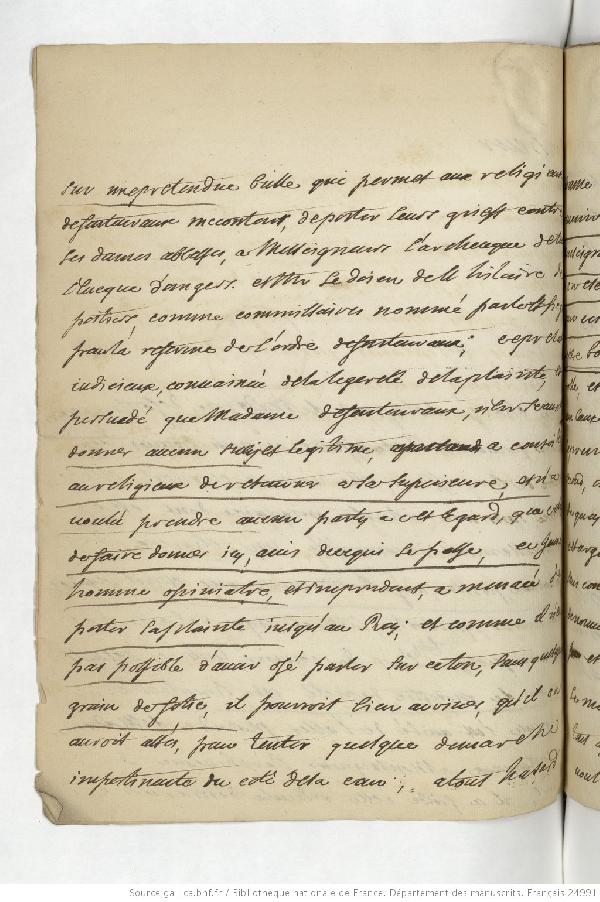 sur une pretendue bulle qui permet aux religieux
de fontevraux mecontens, de porter leurs griefs contre
les dames abbesses, a Messeigneurs l'archeveque de
l'Eveque d'angers. et Mr le doien de St hilaire de
poitiers, comme commissaires nommé par le St Sie
pour la reforme de l'ordre de fontevraux; ce prela
iudicieux, convaincu de la legereté de la plainte, et
persuadé que Madame de fontevraux, n'en
donner aucun sujet legitime, a
au religieux de retourner a sa superieure, et n'a
voulu prendre aucun party a cet egard, que
de faire donner icy, avis de ce qui se passe, ce jeune
homme opiniatre, et imprudent, a menacé de
porter sa plainte jusqu'au Roy; et comme il n'est
pas possible d'avoir osé parler sur ce ton, sans quelque
grain de folie, il pourroit bien arriver, qu'il se
auroit allé, pour tenter quelque demarche
impertinente du coté de la cour; a tout hasard
Source gallica.bnf.fr / Bibliothèque nationale de France. Département des manuscrits. Français 24991